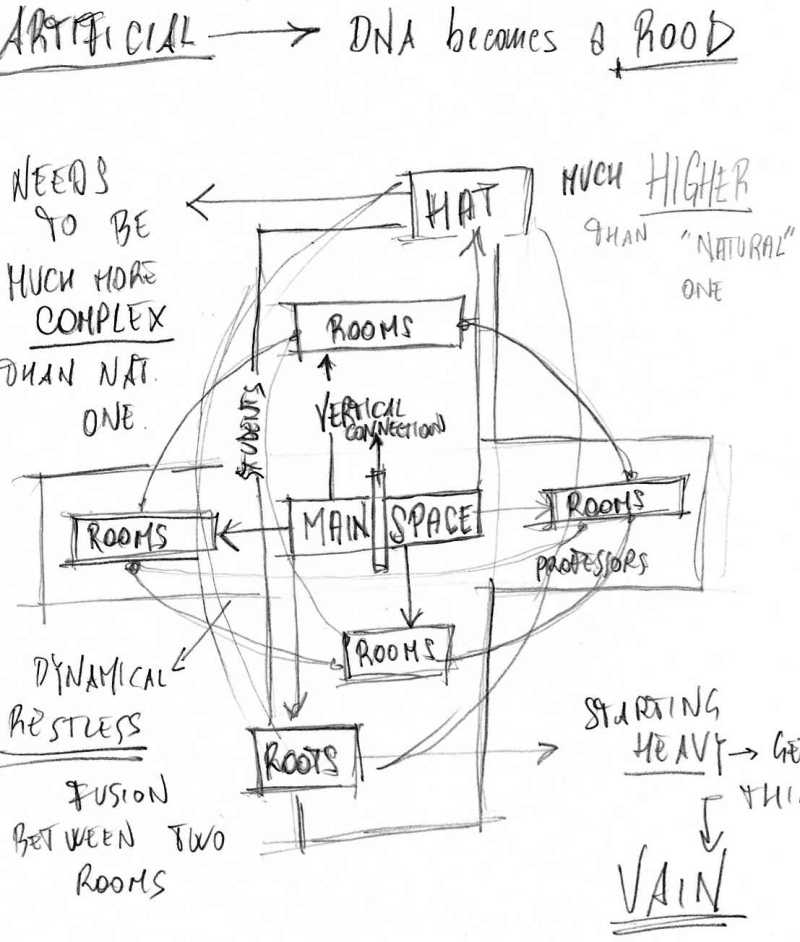 ARTIFICIAL → DNA becomes a ROOD
NEEDS
TO BE
MUCH MORE
COMPLEX
THAN NAT.
ONE.
HAT
MUCH HIGHER
THAN "NATURAL"
ONE
ROOMS
STUDENTS
VERTICAL
CONNECTION
ROOMS
MAIN SPACE
ROOMS
PROFESSORS
ROOMS
DYNAMICAL
RESTLESS
FUSION
BETWEEN TWO
ROOMS
ROOTS
STARTING
HEAVY → GE
THI
VAIN